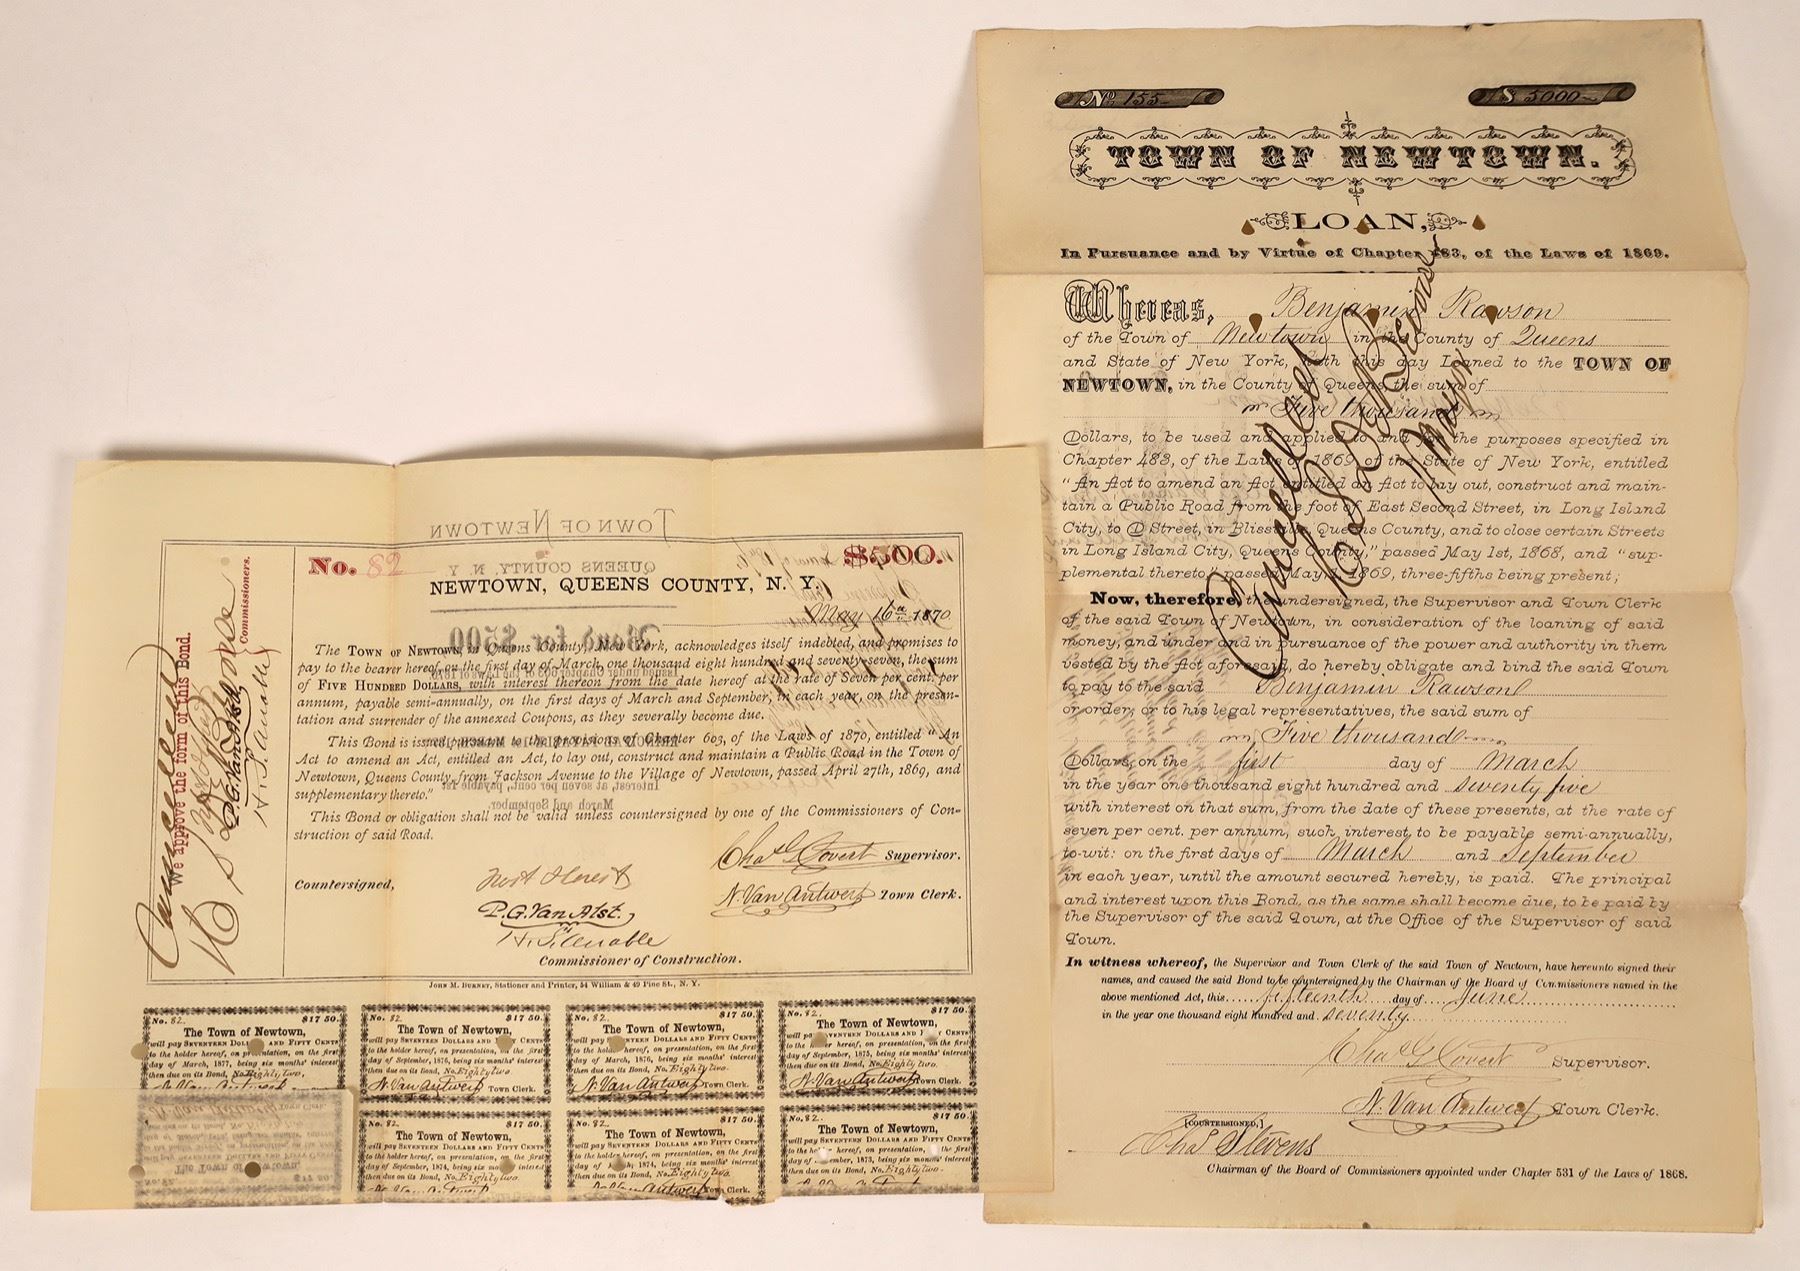 No. 82
$500.
NEWTOWN, QUEENS COUNTY, N. Y.
May 16th 1870
The TOWN OF NEWTOWN, in Queens County, New York, acknowledges itself indebted, and promises to
pay to the bearer hereof, on the first day of March, one thousand eight hundred and seventy-seven, the sum
of FIVE HUNDRED DOLLARS, with interest thereon from the date hereof at the rate of Seven per cent. per
annum, payable semi-annually, on the first days of March and September, in each year, on the presen-
tation and surrender of the annexed Coupons, as they severally become due.
This Bond is issued pursuant to the provisions of Chapter 603, of the Laws of 1870, entitled "An
Act to amend an Act, entitled an Act, to lay out, construct and maintain a Public Road in the Town of
Newtown, Queens County, from Jackson Avenue to the Village of Newtown, passed April 27th, 1869, and
supplementary thereto."
This Bond or obligation shall not be valid unless countersigned by one of the Commissioners of Con-
struction of said Road.
Chas G Covert Supervisor.
Countersigned,
N. Van Antwerp Town Clerk.
P. G. Van Alst.
Commissioner of Construction.
JOHN M. BURNET, Stationer and Printer, 54 William & 49 Pine St., N. Y.
We approve the form of this Bond.
Cancelled
P. G. Van Alst
Commissioners.
TOWN OF NEWTOWN
QUEENS COUNTY, N. Y.
Bond for $500
Issued under Chapter 603 of the Laws of 1870
Interest, at seven per cent, payable 1st
March and September.
No. 82. $17 50.
The Town of Newtown,
will pay SEVENTEEN DOLLARS AND FIFTY CENTS
to the holder hereof, on presentation, on the first
day of March, 1877, being six months' interest
then due on its Bond, No. Eighty two,
N. Van Antwerp
No. 82. $17 50.
The Town of Newtown,
will pay SEVENTEEN DOLLARS AND FIFTY CENTS
to the holder hereof, on presentation, on the first
day of September, 1876, being six months' interest
then due on its Bond, No. Eighty two
N. Van Antwerp Town Clerk.
No. 82. $17 50.
The Town of Newtown,
will pay SEVENTEEN DOLLARS AND FIFTY CENTS
to the holder hereof, on presentation, on the first
day of March, 1876, being six months' interest
then due on its Bond, No. Eighty two
N. Van Antwerp Town Clerk.
No. 82. $17 50.
The Town of Newtown,
will pay SEVENTEEN DOLLARS AND FIFTY CENTS
to the holder hereof, on presentation, on the first
day of September, 1875, being six months' interest
then due on its Bond, No. Eighty two
N. Van Antwerp Town Clerk.
The Town of Newtown,
$17 50.
No. 82. $17 50.
The Town of Newtown,
will pay SEVENTEEN DOLLARS AND FIFTY CENTS
to the holder hereof, on presentation, on the first
day of September, 1874, being six months' interest
then due on its Bond, No. Eighty two
N. Van Antwerp
No. 82. $17 50.
The Town of Newtown,
will pay SEVENTEEN DOLLARS AND FIFTY CENTS
to the holder hereof, on presentation, on the first
day of 1874, being six months' interest
then due on its Bond, No. Eighty two
N. Van Antwerp Town Clerk.
No. 82. $17 50.
The Town of Newtown,
will pay SEVENTEEN DOLLARS AND FIFTY CENTS
to the holder hereof, on presentation, on the first
day of September, 1873, being six months' interest
then due on its Bond, No. Eighty two.
No 155
$ 5000
TOWN OF NEWTOWN.
LOAN,
In Pursuance and by Virtue of Chapter 483, of the Laws of 1869.
Whereas, Benjamin Rawson
of the Town of Newtown in the County of Queens
and State of New York, hath this day Loaned to the TOWN OF
NEWTOWN, in the County of Queens, the sum of
Five thousand
Dollars, to be used and applied to and for the purposes specified in
Chapter 483, of the Laws of 1869, of the State of New York, entitled
"An Act to amend an Act entitled an Act to lay out, construct and main-
tain a Public Road from the foot of East Second Street, in Long Island
City, to D Street, in Blissville, Queens County, and to close certain Streets
in Long Island City, Queens County," passed May 1st, 1868, and "sup-
plemental thereto," passed May 1, 1869, three-fifths being present;
Now, therefore, the undersigned, the Supervisor and Town Clerk
of the said Town of Newtown, in consideration of the loaning of said
money, and under and in pursuance of the power and authority in them
vested by the Act aforesaid, do hereby obligate and bind the said Town
to pay to the said Benjamin Rawson
or order, or to his legal representatives, the said sum of
Five thousand
Dollars, on the first day of March
in the year one thousand eight hundred and seventy five
with interest on that sum, from the date of these presents, at the rate of
seven per cent. per annum, such interest, to be payable semi-annually,
to-wit: on the first days of March and September
in each year, until the amount secured hereby, is paid. The principal
and interest upon this Bond, as the same shall become due, to be paid by
the Supervisor of the said Town, at the Office of the Supervisor of said
Town.
In witness whereof, the Supervisor and Town Clerk of the said Town of Newtown, have hereunto signed their
names, and caused the said Bond to be countersigned by the Chairman of the Board of Commissioners named in the
above mentioned Act, this fifteenth day of June
in the year one thousand eight hundred and seventy
Chas G Covert Supervisor.
N. Van Antwerp Town Clerk.
[COUNTERSIGNED,]
Chas Stevens
Chairman of the Board of Commissioners appointed under Chapter 531 of the Laws of 1868.
Cancelled